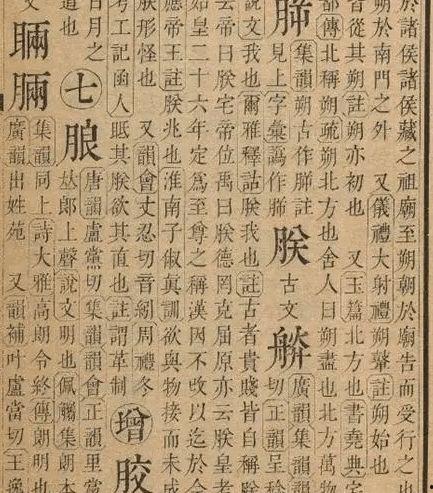 於諸侯諸侯藏之祖廟至朔朝於廟告而受行之也
朔於南門之外 又儀禮大射禮朔鼙註朔始也
音從其朔註朔亦初也 又玉篇北方也書堯典宅
都傳北稱朔疏朔北方也舍人曰朔盡也北方萬物
集韻朔古作註
見上字彙譌作
朕 古文
廣韻集韻韻
切正韻呈稔
說文我也爾雅釋詁朕我也註古者貴賤皆自稱朕
云帝曰朕宅帝位禹曰朕德罔克屈原亦云朕皇考
始皇二十六年定爲至尊之稱漢因不改以迄於今
應帝王註朕兆也淮南子俶眞訓欲與物接而未成
朕形怪也 又韻會丈忍切音紖周禮冬
考工記函人眡其朕欲其直也註謂革制
增 胶
日月之
道也
七 朖
唐韻盧黨切集韻韻會正韻里黨
𠀤郎上聲說文明也佩觿集朗本
集韻同上詩大雅高朗令終傳朗明也
廣韻出姓苑 又韻補叶盧當切王逸